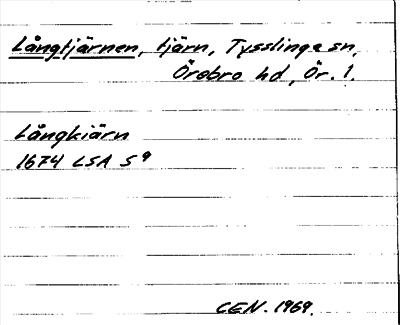 Långtjärnen, tjärn, Tysslinge sn,
Örebro hd, Ör. l.
Långkiärn
1674 LSA S 9
CEN. 1969.